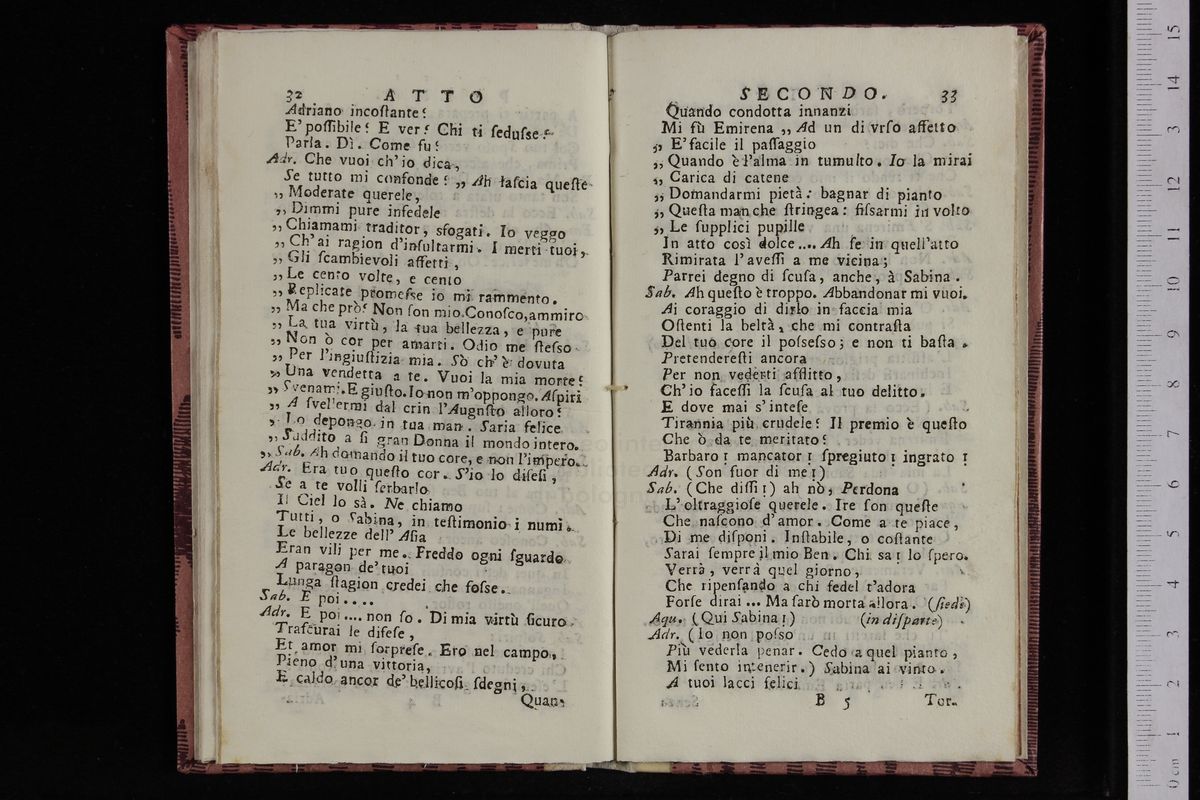 32 ATTO
Adriano incoſtante?
E' poſſibile? E ver? Chi ti ſeduſse?
Parla. Dì. Come fu?
Adr. Che vuoi ch' io dica,
Se tutto mi confonde? „ Ah laſcia queſte
„ Moderate querele,
„ Dimmi pure infedele
„ Chiamami traditor, sfogati. Io veggo
„ Ch' ai ragion d'inſultarmi. I merti tuoi,
„ Gli ſcambievoli affetti,
„ Le cento volte, e cento
„ Replicate promeſse io mi rammento.
„ Ma che prò? Non ſon mio. Conoſco, ammiro
„ La tua virtù, la tua bellezza, e pure
„ Non ò cor per amarti. Odio me ſteſso
„ Per l'ingiuſtizia mia. Sò ch' è dovuta
„ Una vendetta a te. Vuoi la mia morte?
„ Svenami. E giuſto. Io non m'oppongo. Aſpiri
„ A ſvellermi dal crin l'Augnſto alloro?
„ Lo depongo in tua man. Saria felice
„ Suddito a ſi gran Donna il mondo intero.
„ Sab. Ah domando il tuo core, e non l'impero.
Adr. Era tuo queſto cor. S'io lo difeſi,
Se a te volli ſerbarlo
Il Ciel lo sà. Ne chiamo
Tutti, o Sabina, in teſtimonio i numi.
Le bellezze dell' Aſia
Eran vili per me. Freddo ogni ſguardo
A paragon de' tuoi
Lunga ſtagion credei che foſse.
Sab. E poi....
Adr. E poi.... non ſo. Di mia virtù ſicuro
Traſcurai le difeſe,
Et amor mi ſorpreſe. Ero nel campo,
Pieno d'una vittoria,
E caldo ancor de' bellicoſi ſdegni,
Quan-
SECONDO. 33
Quando condotta innanzi
Mi fù Emirena „ Ad un di vrſo affetto
„ E' facile il paſſaggio
„ Quando è l'alma in tumulto. Io la mirai
„ Carica di catene
„ Domandarmi pietà: bagnar di pianto
„ Queſta man che ſtringea: fiſsarmi in volto
„ Le ſupplici pupille
In atto così dolce.... Ah ſe in quell'atto
Rimirata l' aveſſi a me vicina;
Parrei degno di ſcuſa, anche, à Sabina.
Sab. Ah queſto è troppo. Abbandonar mi vuoi.
Ai coraggio di dirlo in faccia mia
Oſtenti la beltà, che mi contraſta
Del tuo core il poſseſso; e non ti baſta.
Pretendereſti ancora
Per non vederti afflitto,
Ch' io faceſſi la ſcuſa al tuo delitto.
E dove mai s' inteſe
Tirannia più crudele? Il premio è queſto
Che ò da te meritato?
Barbaro! mancator! ſpregiuto! ingrato!
Adr. (Son fuor di me!)
Sab. (Che diſſi!) ah nò, Perdona
L' oltraggioſe querele. Ire ſon queſte
Che naſcono d' amor. Come a te piace,
Di me diſponi. Inſtabile, o coſtante
Sarai ſempre il mio Ben. Chi sa! lo ſpero.
Verrà, verrà quel giorno,
Che ripenſando a chi fedel t'adora
Forſe dirai... Ma ſarò morta allora. (ſiede)
Aqu. (Qui Sabina!) (in diſparte)
Adr. (Io non poſso
Più vederla penar. Cedo a quel pianto,
Mi ſento intenerir.) Sabina ai vinto.
A tuoi lacci felici
B 5 Tor-